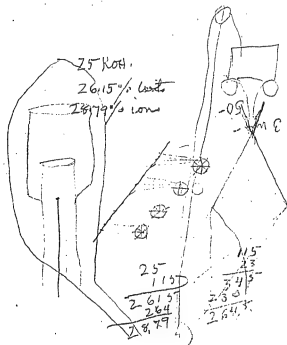 25 KOH.
26.15%
28.79% ions
50-
3 w -
25
115
2615
264
28,79
115
23
345
230
2645